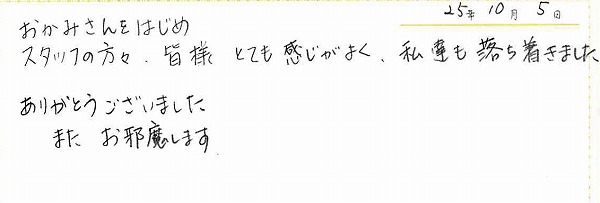 25年 10月 5日
おかみさんをはじめ
スタッフの方々、皆様 とても感じがよく、私達も落ち着きました
ありがとうございました
また お邪魔します